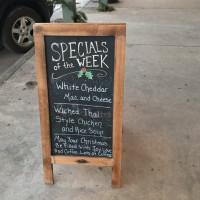 SPECIALS
of the WEEK
White Cheddar
Mac and Cheese
Wicked Thai
Style Chicken
and Rice Soup
May Your Christmas
Be Filled With Joy, Love
And Coffee. Lots of Coffee!